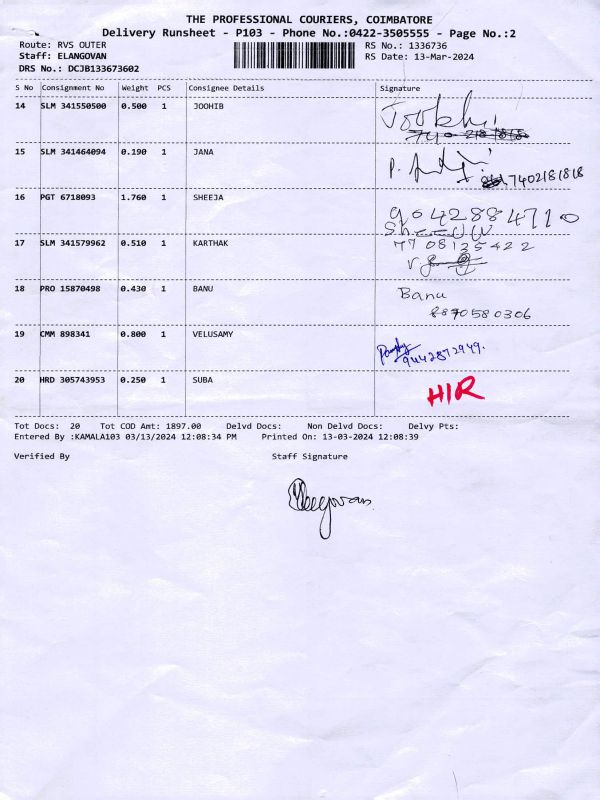 THE PROFESSIONAL COURIERS, COIMBATORE
Delivery Runsheet - P103 - Phone No.:0422-3505555 - Page No.:2
Route: RVS OUTER RS No.: 1336736
Staff: ELANGOVAN RS Date: 13-Mar-2024
DRS No.: DCJB133673602
S No Consignment No Weight PCS Consignee Details Signature
14 SLM 341550500 0.500 1 JOOHIB
15 SLM 341464094 0.190 1 JANA 7402181818
16 PGT 6718093 1.760 1 SHEEJA 9042884710
17 SLM 341579962 0.510 1 KARTHAK 7708135422
18 PRO 15870498 0.430 1 BANU Banu
8870580306
19 CMM 898341 0.800 1 VELUSAMY
9442872949.
20 HRD 305743953 0.250 1 SUBA HIR
Tot Docs: 20 Tot COD Amt: 1897.00 Delvd Docs: Non Delvd Docs: Delvy Pts:
Entered By :KAMALA103 03/13/2024 12:08:34 PM Printed On: 13-03-2024 12:08:39
Verified By Staff Signature
Elangovan